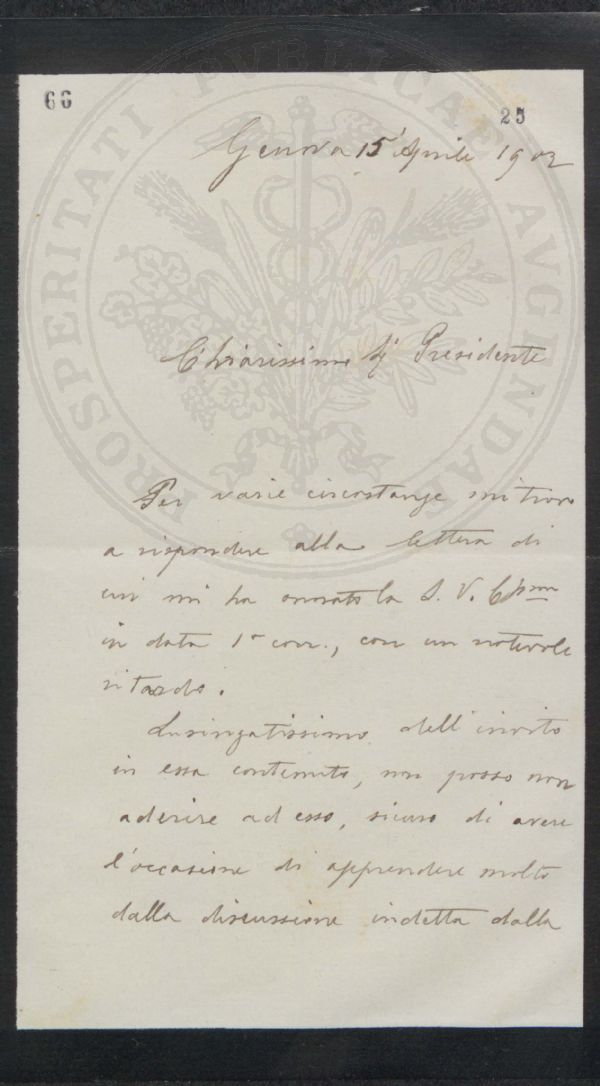 66
25
Genova 15 Aprile 1902
Chiarissimo Sig. Presidente
Per varie circostanze mi trovo
a rispondere alla lettera di
cui mi ha onorato la S. V. Ch.ma
in data 1° corr., con un notevole
ritardo.
Lusingatissimo dell'invito
in essa contenuto, non posso non
aderire ad esso, sicuro di avere
l'occasione di apprendere molto
dalla discussione indetta dalla
PROSPERITATI PVBLICAE AVGENDAE